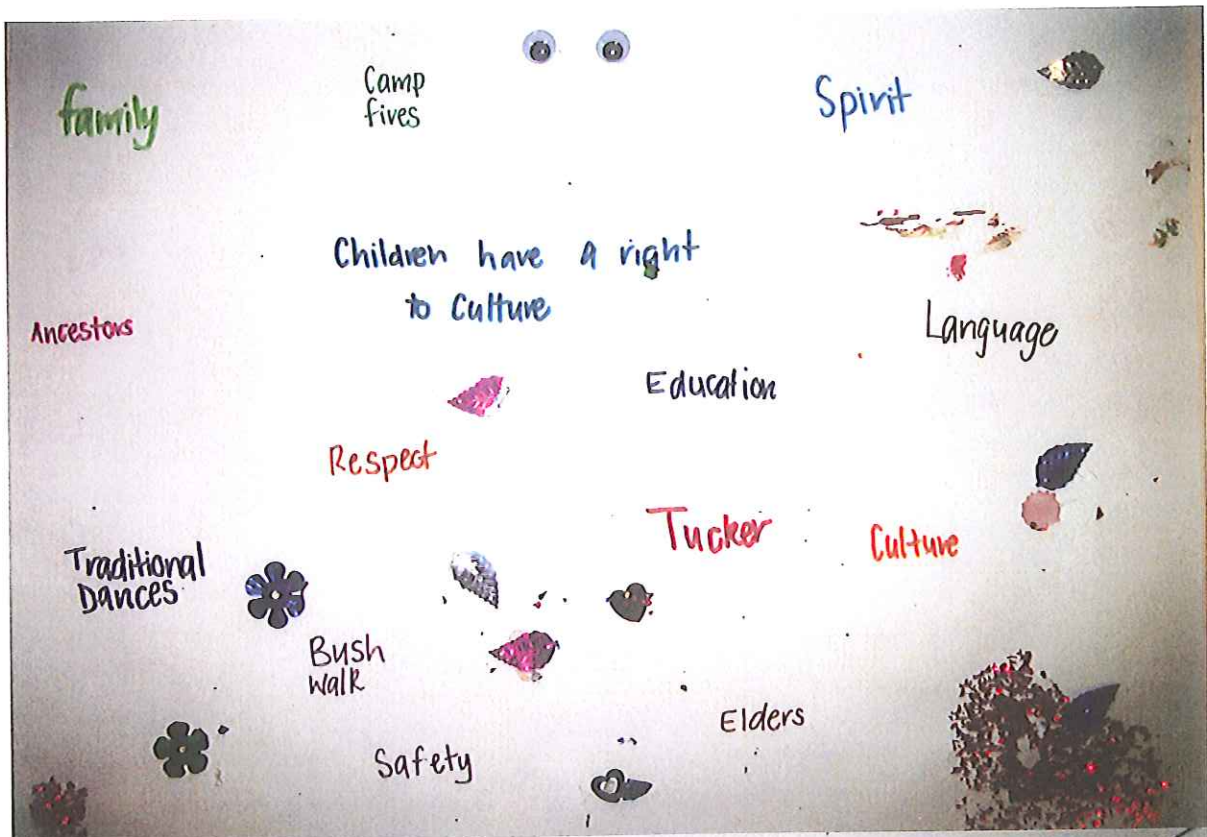 family
Camp
fires
Spirit
Children have a right
to Culture
Ancestors
Language
Education
Respect
Tucker
Culture
Traditional
Dances
Bush
walk
Elders
Safety